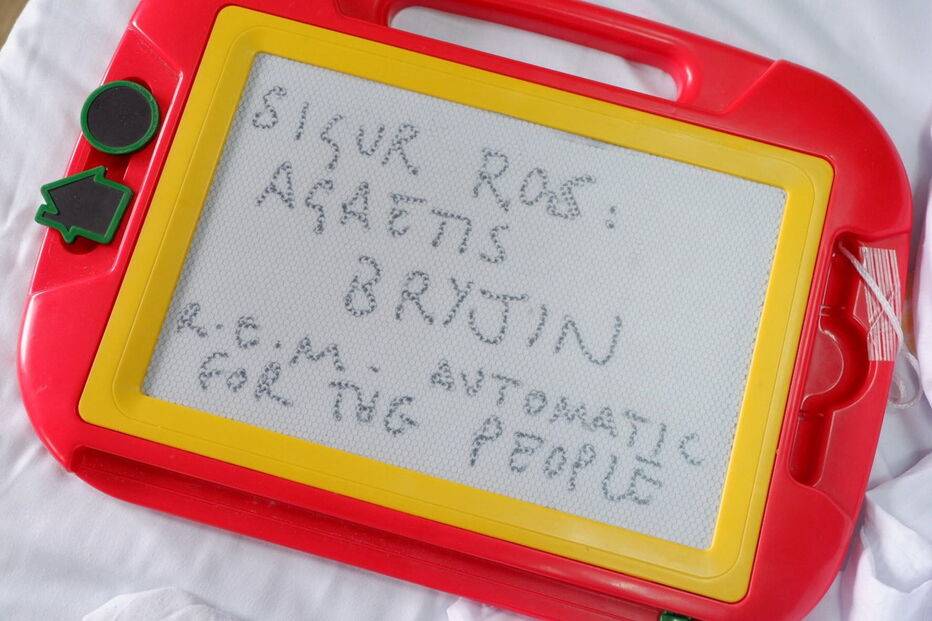 SIGUR ROS:
AGAETIS
BRYJIN
R.E.M. AUTOMATIC
FOR THE PEOPLE